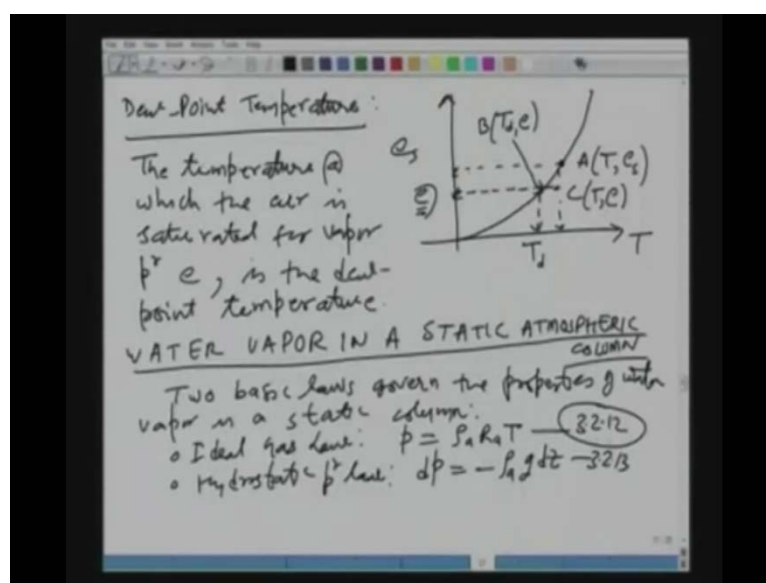 Dew-Point Temperature:
The temperature @
which the air is
saturated for vapor
pr e, is the dew-
point temperature.
e_s
B(T_d, e)
A(T, e_s)
e
C(T, e)
T_d
T
WATER VAPOR IN A STATIC ATMOSPHERIC
COLUMN
Two basic laws govern the properties of water
vapor in a static column:
• Ideal gas law: p = ρ_a R_a T — 3.2.12
• Hydrostatic pr law: dp = - ρ_a g dz — 3.2.13